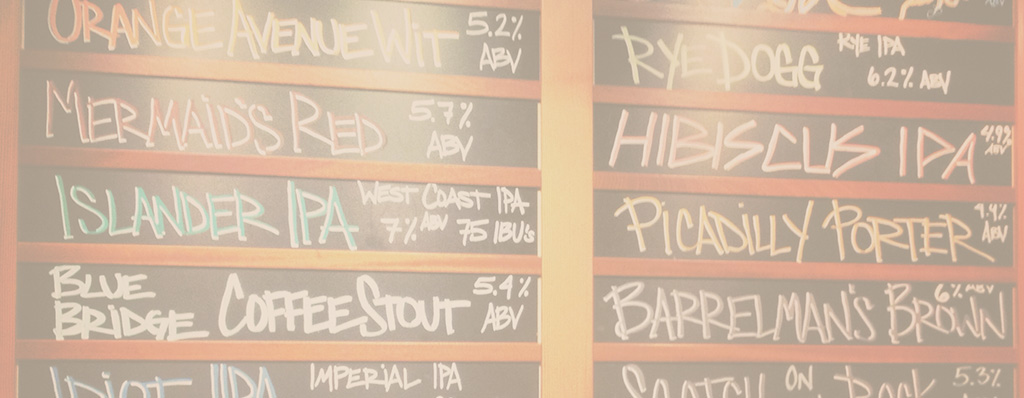 ORANGE AVENUE WIT 5.2% ABV
MERMAID'S RED 5.7% ABV
ISLANDER IPA WEST COAST IPA
7% ABV 75 IBU'S
BLUE BRIDGE COFFEE STOUT 5.4% ABV
IDIOT IIPA IMPERIAL IPA
RYE DOGG RYE IPA
6.2% ABV
HIBISCUS IPA 4.9% ABV
PICADILLY PORTER 4.4% ABV
BARRELMAN'S BROWN 6% ABV
SCOTCH ON ROCK 5.3%